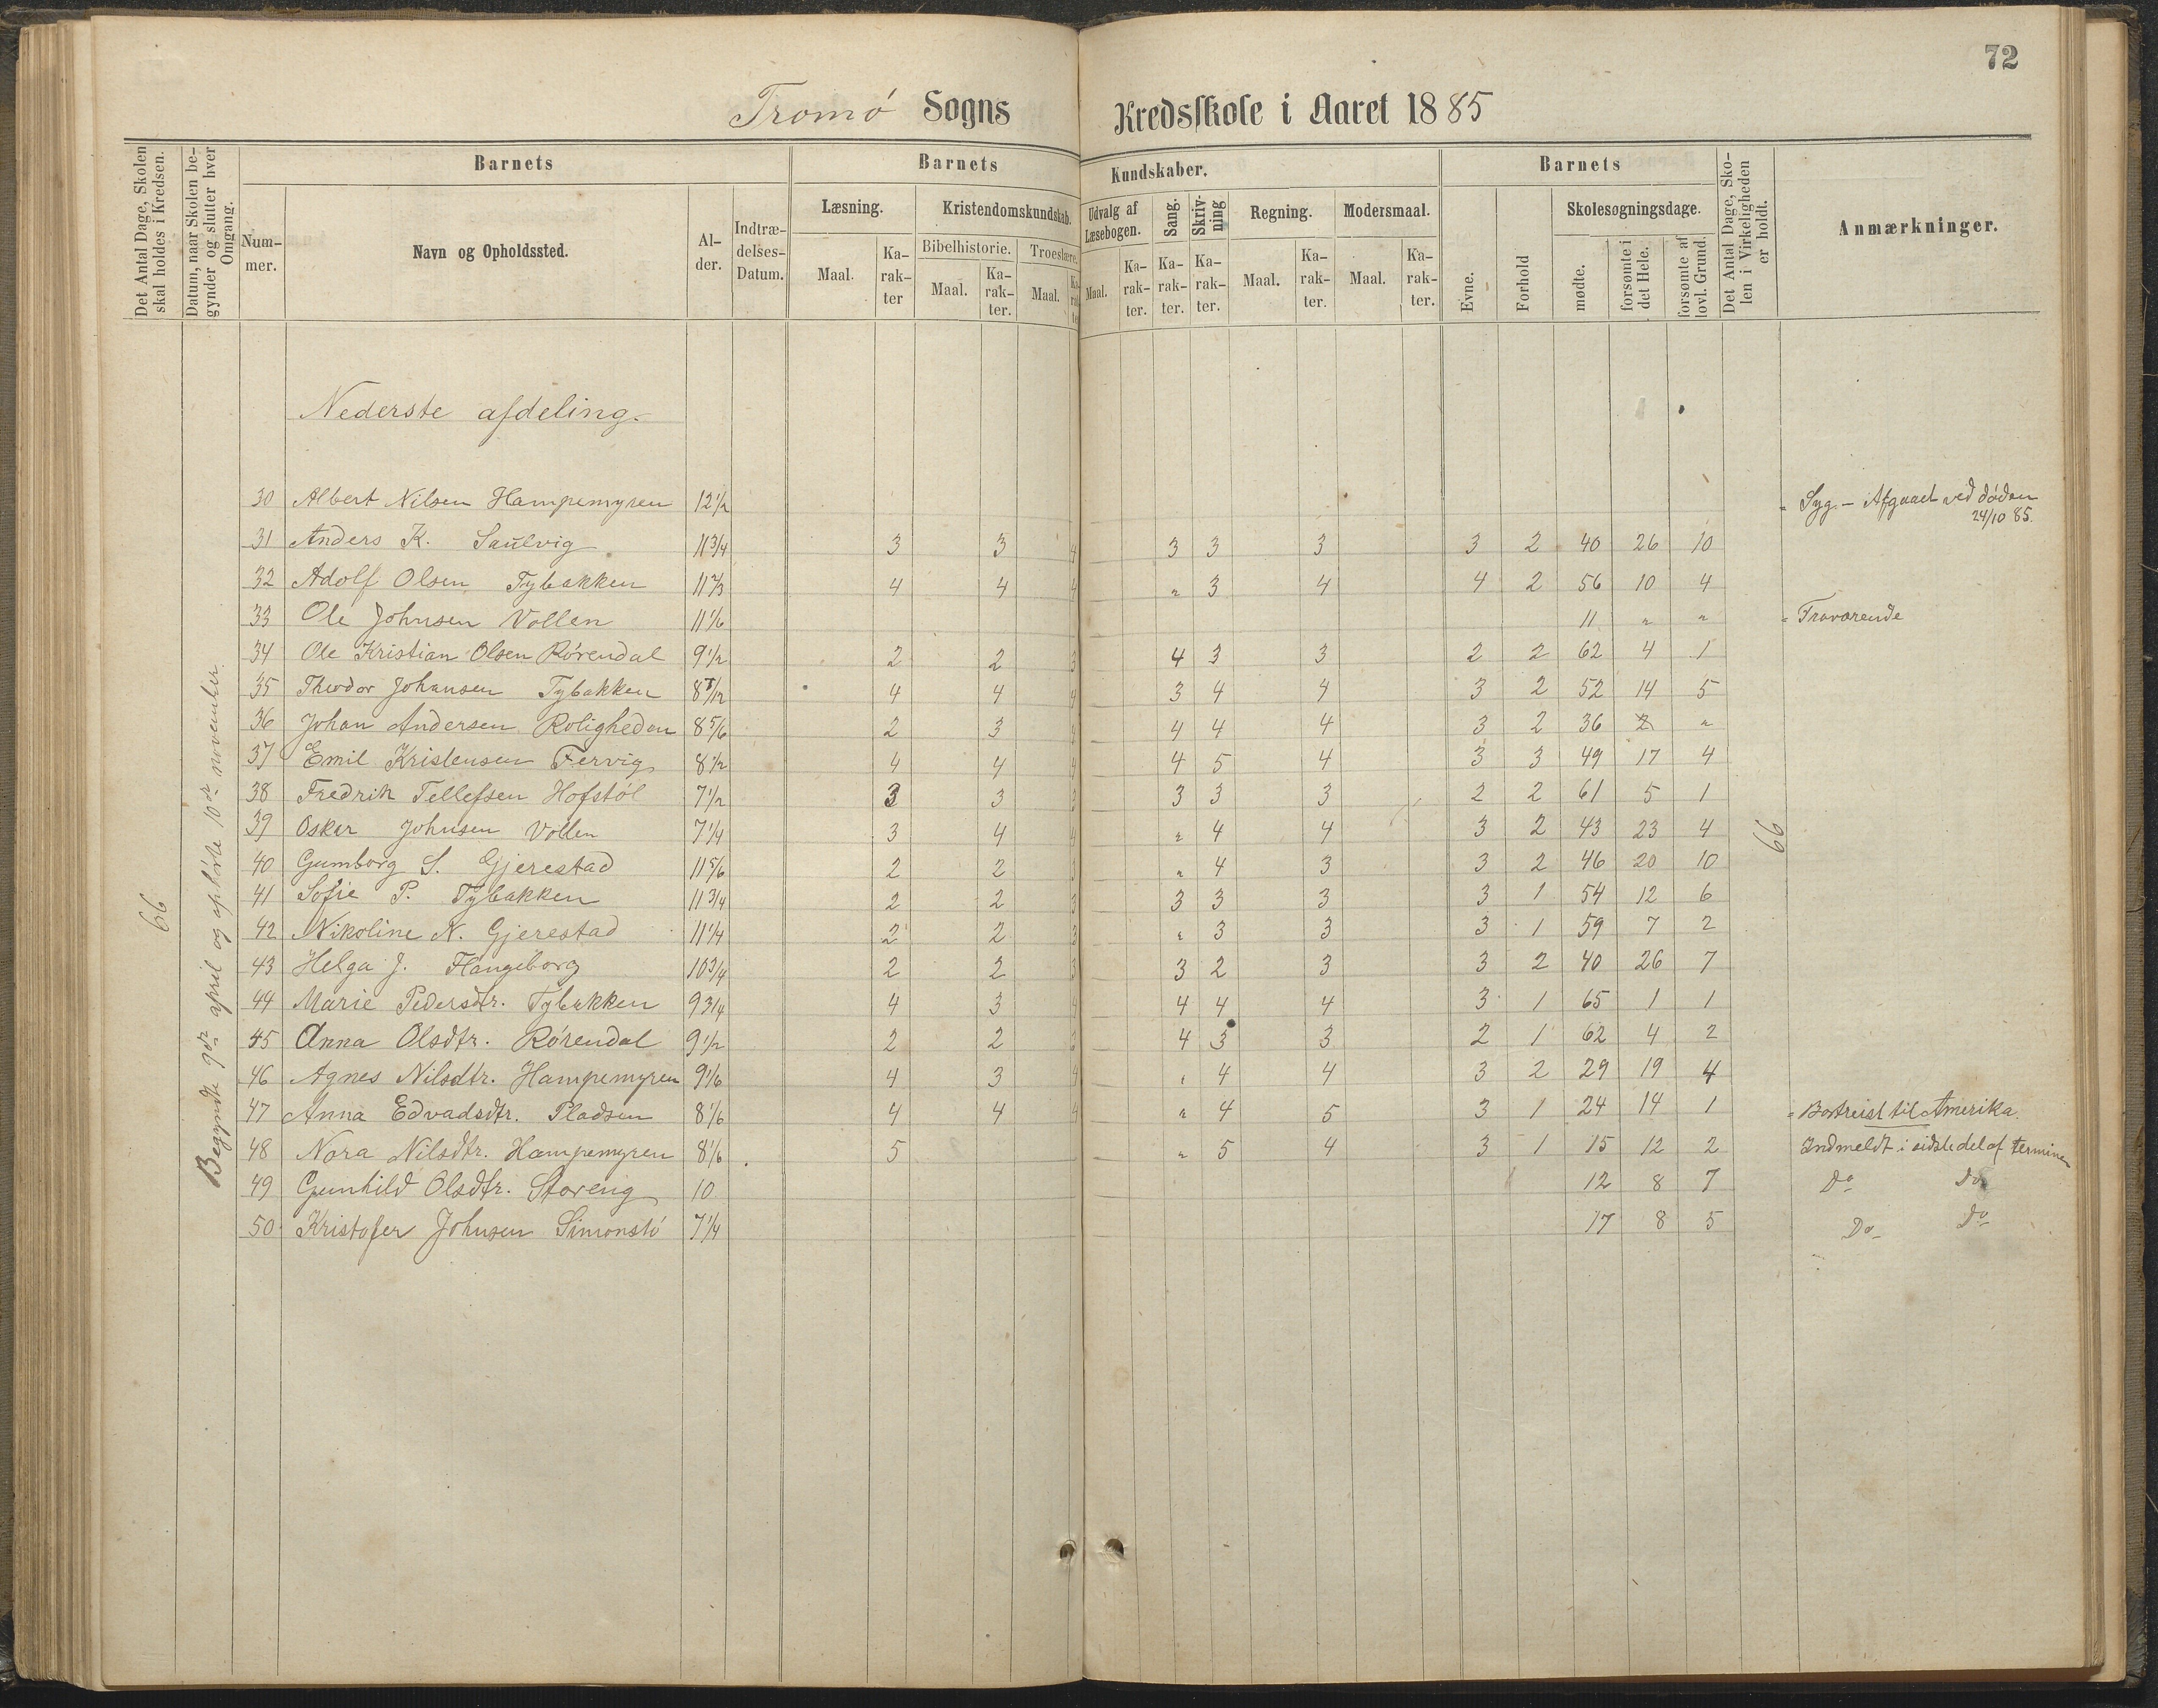 72
Tromø Sogns Kredsskole i Aaret 1885
Det Antal Dage, Skolen skal holdes i Kredsen.
Datum, naar Skolen begynder og slutter hver Omgang.
Barnets
Nummer.
Navn og Opholdssted.
Alder.
Indtrædelses-Datum.
Barnets Kundskaber.
Læsning.
Maal.
Karakter
Kristendomskundskab.
Bibelhistorie.
Maal.
Karakter.
Troeslære.
Maal.
Karakter
Udvalg af Læsebogen.
Maal.
Karakter.
Sang.
Karakter.
Skrivning
Karakter.
Regning.
Maal.
Karakter.
Modersmaal.
Maal.
Karakter.
Barnets
Evne.
Forhold
Skolesøgningsdage.
mødte.
forsømte i det Hele.
forsømte af lovl. Grund.
Det Antal Dage, Skolen i Virkeligheden er holdt.
Anmærkninger.
66
Begyndte 9de april og ophørte 10de november.
66
Nederste afdeling.
30 Albert Nilsen Hampemyren 12 1/2 " Syg. – Afgaaet ved døden 24/10 85.
31 Anders K. Saulvig 11 3/4 3 3 4 3 3 3 3 2 40 26 10
32 Adolf Olsen Tybakken 11 2/3 4 4 4 " 3 4 4 2 56 10 4
33 Ole Johnsen Vollen 11 1/6 11 " " " Fraværende
34 Ole Kristian Olsen Rørendal 9 1/2 2 2 3 4 3 3 2 2 62 4 1
35 Theodor Johansen Tybakken 8 7/12 4 4 4 3 4 4 3 2 52 14 5
36 Johan Andersen Roligheden 8 5/6 2 3 4 4 4 4 3 2 36 2 "
37 Emil Kristensen Fervig 8 1/2 4 4 4 4 5 4 3 3 49 17 4
38 Fredrik Tellefsen Hofstøl 7 1/2 3 3 3 3 3 3 2 2 61 5 1
39 Oskar Johnsen Vollen 7 1/4 3 4 4 " 4 4 3 2 43 23 4
40 Gumborg S. Gjerestad 11 5/6 2 2 3 " 4 3 3 2 46 20 10
41 Sofie P. Tybakken 11 3/4 2 2 3 3 3 3 3 1 54 12 6
42 Nikoline N. Gjerestad 11 1/4 2 2 3 " 3 3 3 1 59 7 2
43 Helga J. Flangeborg 10 3/4 2 2 3 3 2 3 3 2 40 26 7
44 Marie Pedersdtr. Tybakken 9 3/4 4 3 4 4 4 4 3 1 65 1 1
45 Anna Olsdtr. Rørendal 9 1/2 2 2 3 4 3 3 2 1 62 4 2
46 Agnes Nilsdtr. Hampemyren 9 1/6 4 3 4 " 4 4 3 2 29 19 4
47 Anna Edvadsdtr. Pladsen 8 1/6 4 4 4 " 4 5 3 1 24 14 1 " Bortreist til Amerika.
48 Nora Nilsdtr. Hampemyren 8 1/6 5 " 5 4 3 1 15 12 2 Indmeldt i sidste del af terminen
49 Gunhild Olsdtr. Støreng 10 12 8 7 Do Do
50 Kristofer Johnsen Simonstø 7 1/4 17 8 5 Do Do